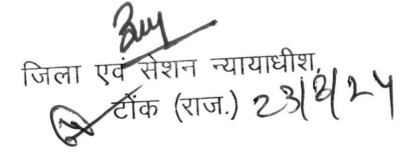 जिला एवं सेशन न्यायाधीश,
टोंक (राज.) 23/8/24